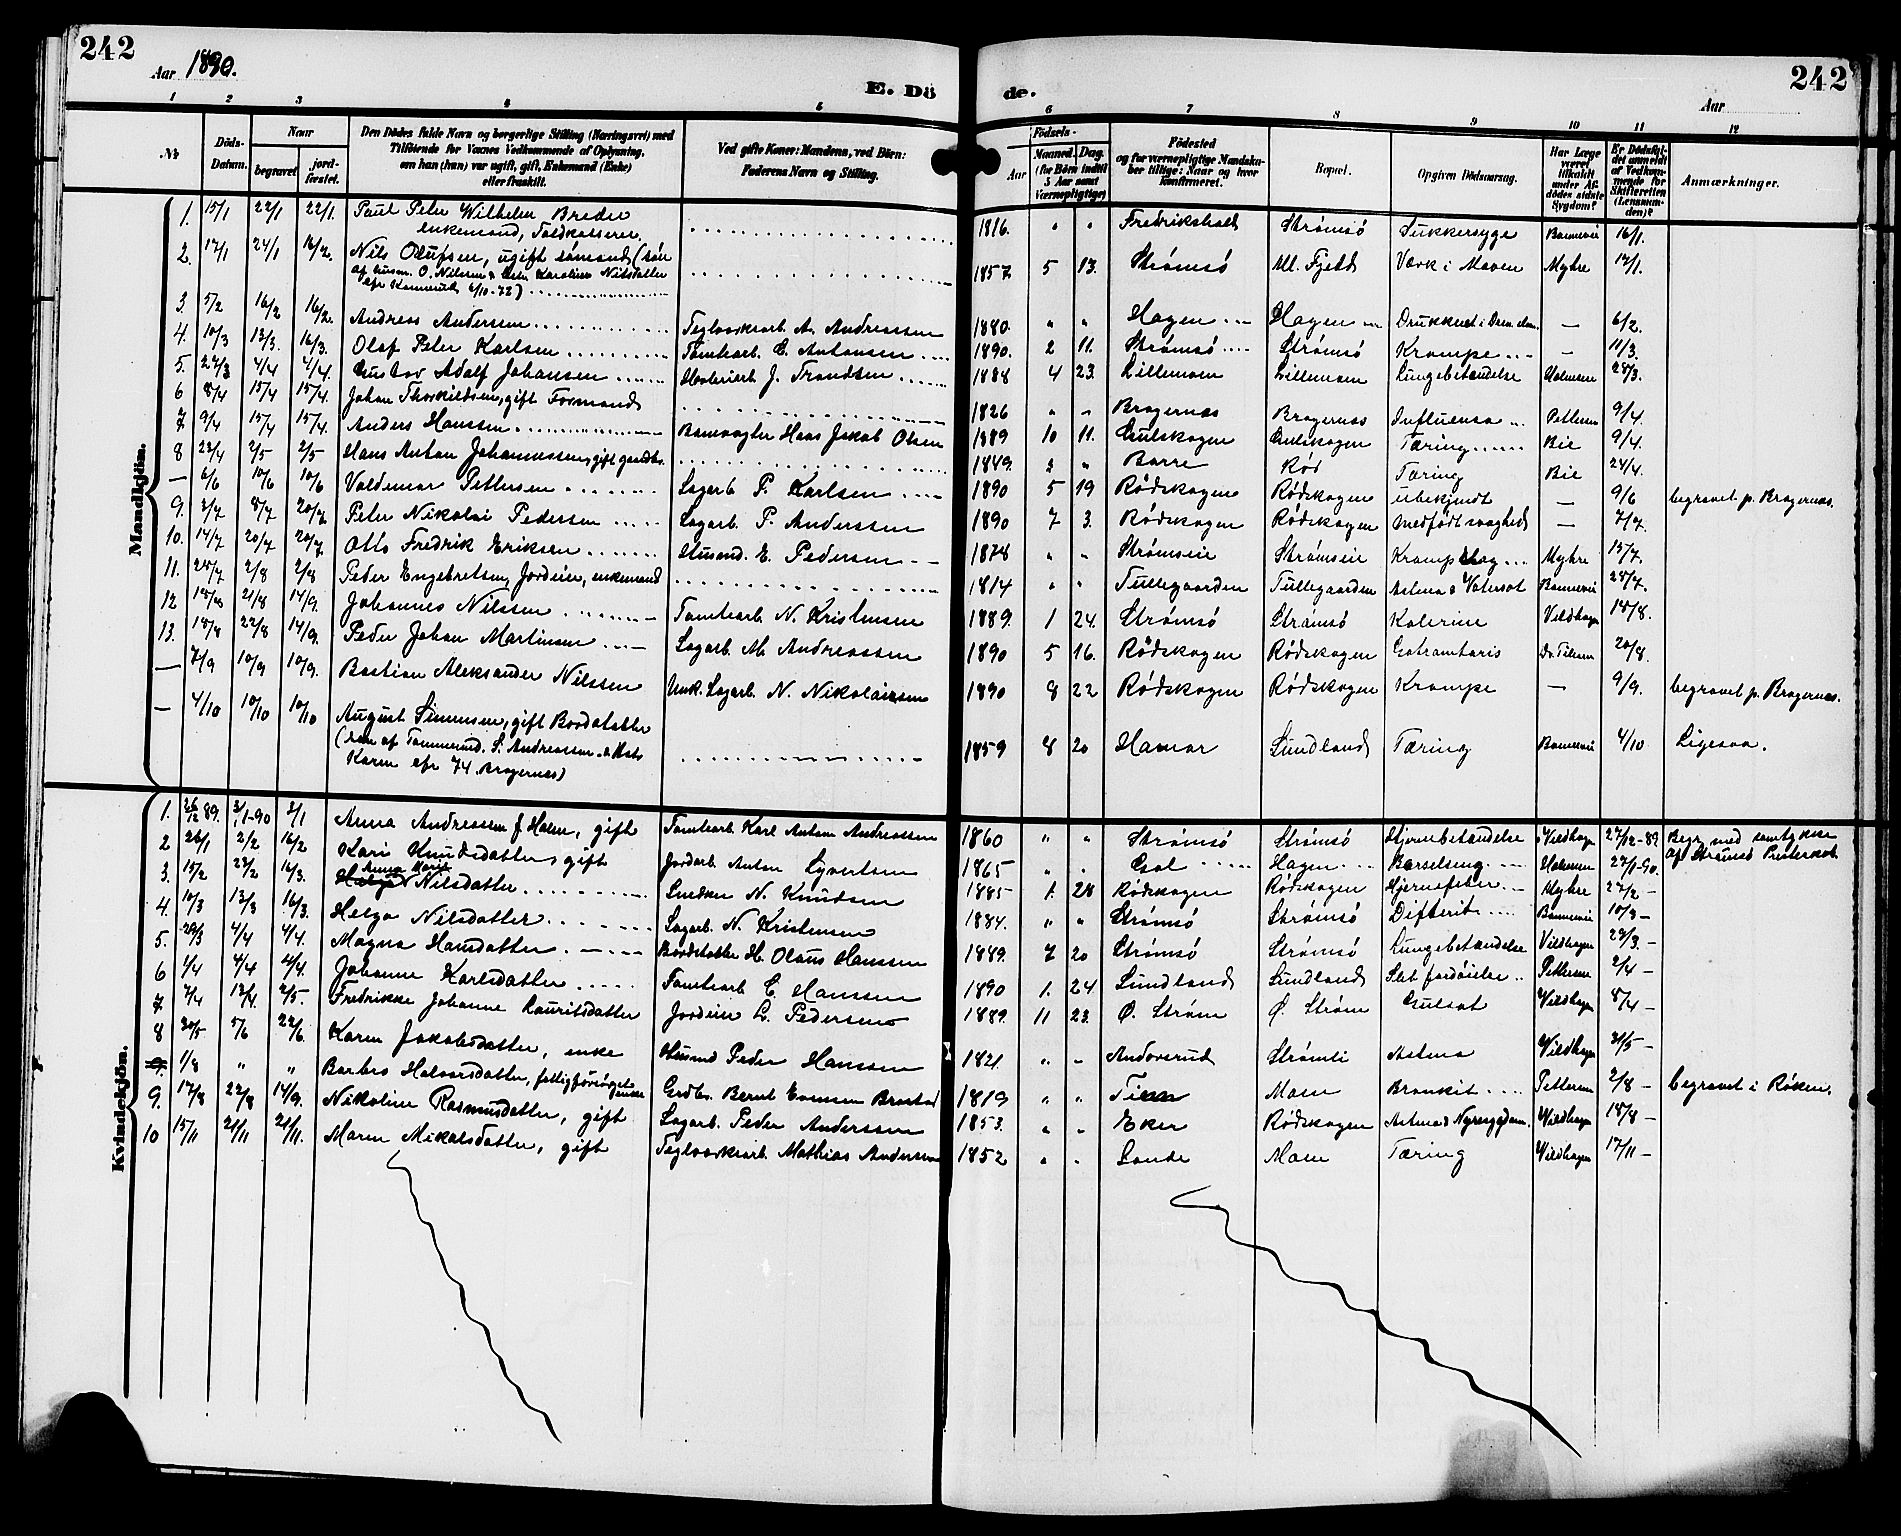 242
242
Aar 1890.
E. Dö de.
Aar
1 2 3 4 5 6 7 8 9 10 11 12
№ Döds-Datum. Naar begravet jordfæstet. Den Dödes fulde Navn og borgerlige Stilling (Næringsvei) med Tilföiende for Voxnes Vedkommende af Oplysning, om han (hun) var ugift, gift, Enkemand (Enke) eller fraskilt. Ved gifte Koner: Mandens, ved Börn: Faderens Navn og Stilling. Födsels- Aar Maaned. Dag. (for Börn indtil 5 Aar samt Værnepligtige) Födested og for værnepligtige Mandskaber tillige: Naar og hvor Konfirmeret. Bopæl. Opgiven Dödsaarsag. Har Læge været tilkaldt under Afdödes sidste Sygdom? Er Dödsfaldet anmeldt af Vedkommende for Skifteretten (Lensmanden)? Anmærkninger.
Mandkjön.
1. 15/1 22/1 22/1. Paul Peter Wilhelm Breder enkemand, Toldkasserer. 1816. " " Fredrikshald Strømsø Sukkersyge 16/1.
2. 17/1 24/1 16/2. Nils Olufsen, ugift sømand (søn af husm. O. Nilsen & Karoline Nilsdatter 1857 5 13. Strømsø Ul. Fjeld Værk i Maven Myhre 17/1.
3. 5/2 16/2 16/2. Andreas Andersen Teglværksarb. A. Andreassen 1880. " " Hagen Hagen Druknet i — 6/2.
4. 10/3 13/3. 16/3. Olaf Peter Karlsen Tomtearb. C. Antonsen 1890. 2 11. Strømsø Strømsø Krampe — 11/3.
5. 27/3 4/4 4/4. Gustav Adolf Johansen J. Trondsen 1888 4 23. Lillemoen Lillemoen Lungebetændelse 28/3.
6 8/4 15/4 15/4. Johan Thorkildsen, gift Formand 1826 " " Bragernes Bragernes Influensa Pettersen 9/4.
7 9/4 15/4 15/4. Anders Hansen Banevogter Hans Jakob Olsen 1889 10 11. Gulskogen Gulskogen Tæring Bie 9/4.
8 23/4 2/5 2/5 Hans Anton Johannessen, gift gaardbr. 1849. 3 " Borre Rød Tæring Bie 24/4.
— 6/6 10/6 10/6 Valdemar Pettersen Sagarb P. Karlsen 1890 5 19 Rødskogen Rødskogen ubekjendt — 9/6 begravet p. Bragernes.
9. 3/7 8/7 20/7 Peter Nikolai Pedersen Sagarb. P. Anderssen 1890 7 3. Rødskogen Rødskogen Medfødt svaghed — 7/7.
10. 14/7 20/7 20/7 Otto Fredrik Eriksen Husmd. E. Pedersen 1878 " " Strømseie Strømseie Myhre 15/7.
11. 25/7 2/8 2/8 Peder Engebretsen, Jordeier, enkemand 1814 " " Tullegaarden Tullegaarden Astma & Vatersot 28/7.
12 21/8 14/9. Johannes Nilssen Tomtearb. N. Kristensen 1889. 1 24. Strømsø Strømsø Kolerine Vildhagen 18/8.
13. 18/8 22/8 14/9. Peder Johan Martinsen Sagarb. M. Andreassen 1890 5 16. Rødskogen Rødskogen Dr. 20/8.
— 7/9 10/9 10/9. Bastian Aleksander Nilssen Unk. Sagarb. N. Nikolaisen 1890 8 22 Rødskogen Rødskogen Krampe — 9/9. begravet p. Bragernes.
— 4/10 10/10 10/10 August Simensen, gift Bordstabler (søn af Tømmermd. S. Andreassen & Karen efr 74. Bragernes) 1859 8 20 Hamar Sundland Tæring 4/10 Ligesaa.
Kvindekjön.
1. 26/12 89. 3/1-90 3/1 Anna Andreassen f. Holm, gift Tomtearb. Karl Anton Andreassen 1860 " " Strømsø Strømsø Hjernebetændelse Vildhagen 27/12-89 Begr. med samtykke af Strømsø Presteskab
2 26/1 2/2 16/2 Kari Knudsdatter, gift Jordarb. Anton Syvertsen 1865 " . Gol Hagen Barselseng 27/1-90.
3. 15/2 22/2 16/3. Nilsdatter Snedker N. Knudsen 1885 1. 28 Rødskogen Rødskogen Hjernefeber Myhre 27/2 -
4. 10/3 13/3 16/3. Helga Nilsdatter Sagarb. N. Kristensen 1884. " " Strømsø Strømsø Difterit 10/3 -
5. 29/3 4/4 4/4. Magna Hansdatter Bordstabler H. Olaus Hanssen 1889. 7 20 Strømsø Strømsø Lungebetændelse Vildhagen 29/3. -
6 1/4 4/4 4/4. Johanne Karlsdatter Tomtearb C. Hanssen 1890 1. 24 Sundland Sundland Slet fordøielse Pettersen 2/4 -
7 7/4 12/4. 2/5. Fredrikke Johanne Lauritsdatter Jordeier L. Pedersen 1889. 11 23. Ø. Strøm Ø. Strøm Gulsot Vildhagen 8/4 -
8 30/5 5/6 22/6. Karen Jakobsdatter, enke Husmd Peder Hanssen 1821. " " Andorsrud Strømli Astma Vildhagen 31/5 -
1/8 " " Barbro Halvorsdatter, fattigforsørget Grdbr. Bernt Evensen 1819 " " Moen Bronkit Pettersen 2/8 - begravet i Røken.
9. 17/8 22/8 14/9. Nikoline Rasmusdatter, gift Sagarb. Peder Anderssen 1853. " " Eker Rødskogen Astma & Nyresygdom. Vildhagen 18/8 -
10 15/11 21/11 21/11. Maren Mikalsdatter, gift Teglværksarb. Mathias Andersen 1852 " " Sande Moen Tæring Vildhagen 17/11 -